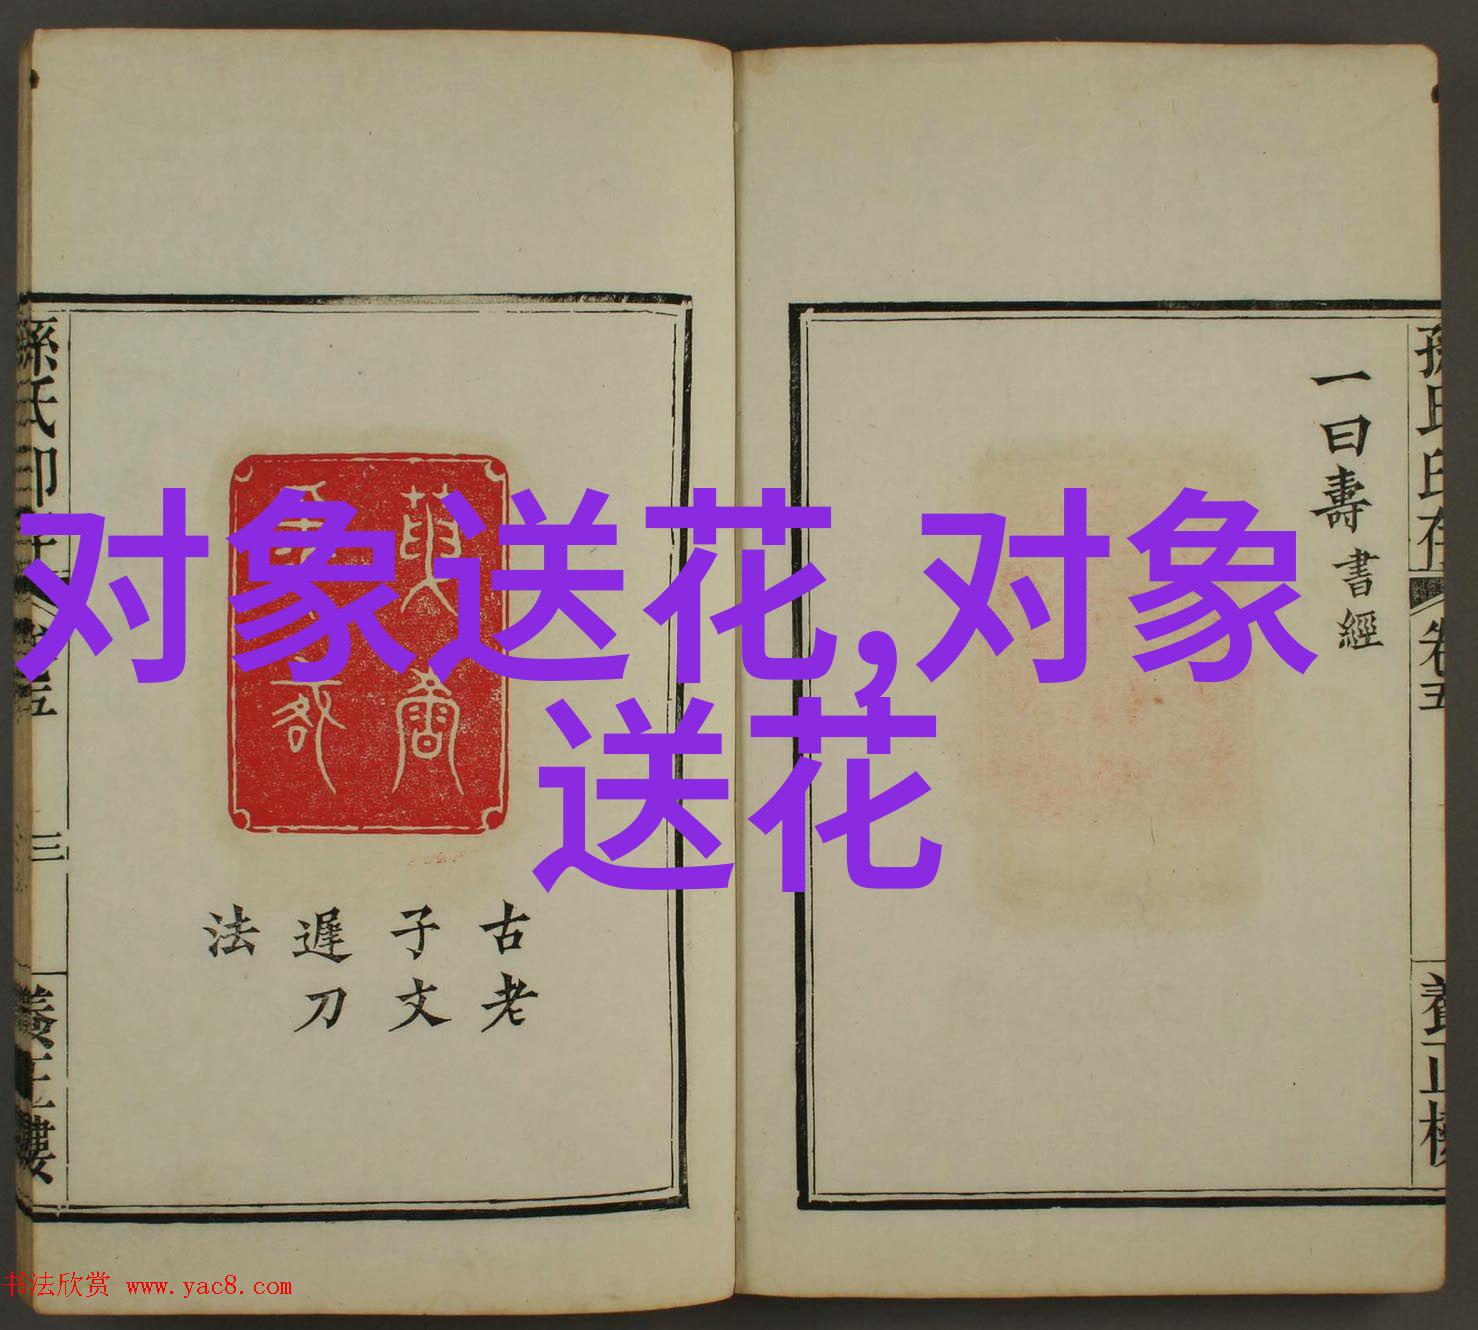 对象送花,对象
送花
一曰壽書經
孫氏印存
卷五
養正樓
古老
子文
遲刀
法
孫氏印存
卷五
三
養正樓
书法欣赏 www.yac8.com